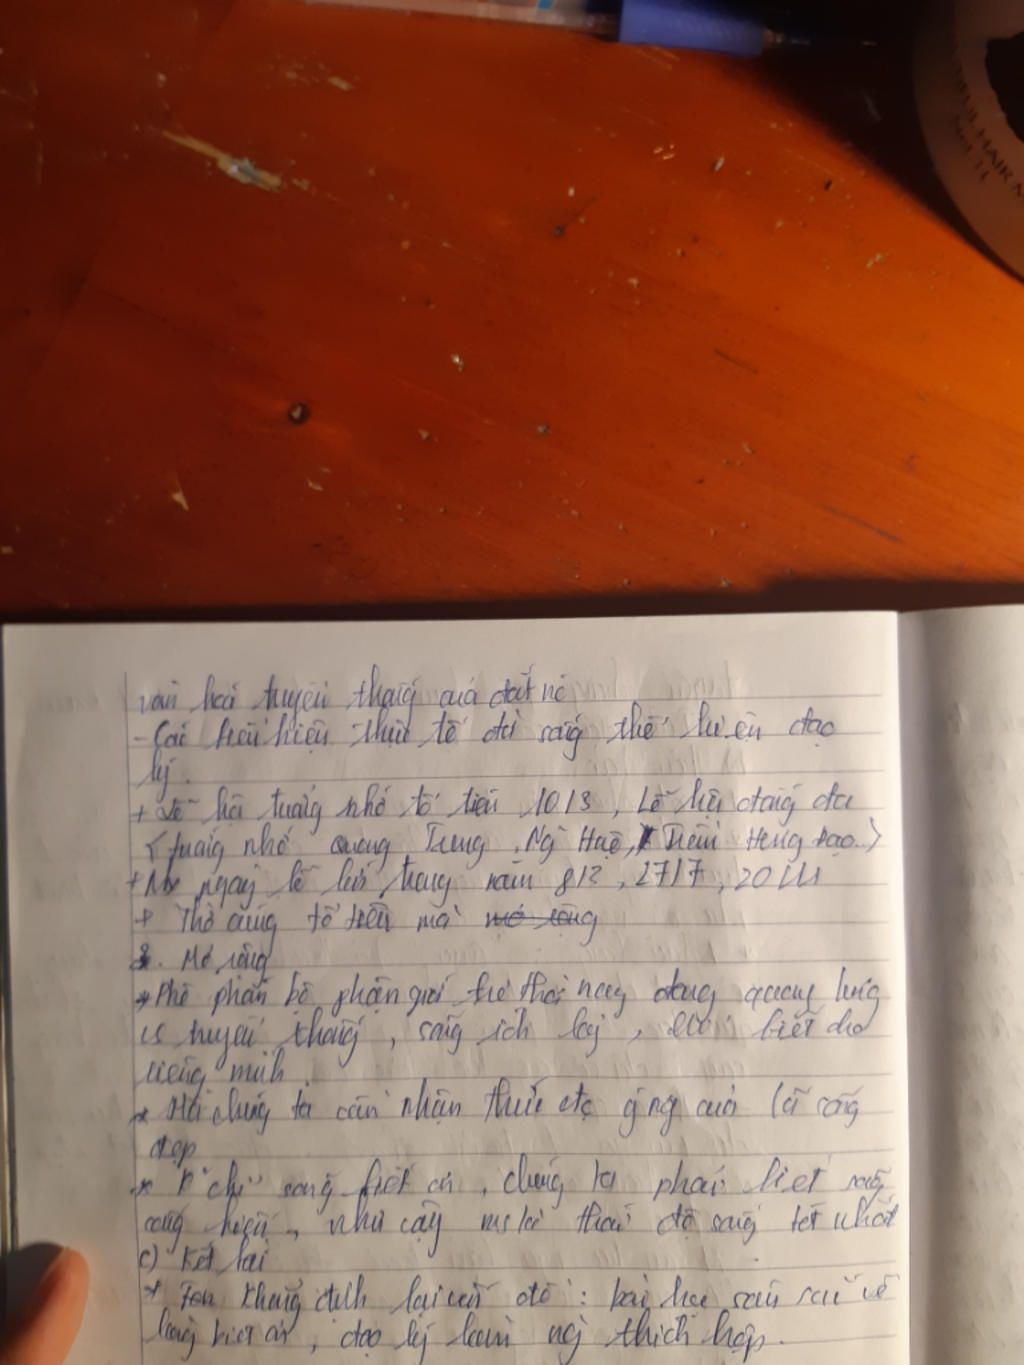 văn hoá truyền thống của đất nc
- Các biểu hiện thực tế đời sống thể hiện đạo
lý.
+ Lễ hội tưởng nhớ tổ tiên 10/3, Lễ hội đống đa
(tưởng nhớ Quang Trung, Ng Huệ, Trần Hưng Đạo...)
+ ngày lễ lớn trong năm 8/3, 27/7, 20/11
+ Thờ cúng tổ tiên
Mở rộng
* Phê phán bộ phận giới trẻ thời nay đang quay lưng
truyền thống, sống ích kỷ, biết cho
riêng mình.
* chúng ta cần nhận thức đc ý ng của lối sống
đẹp
* K chỉ sống biết ơn, chúng ta phải biết sống
cống hiến, như vậy mới là thái độ sống tốt nhất
c) Kết bài
* khẳng định lại vấn đề: bài học sâu sắc về
lòng biết ơn, đạo lý làm ng thích hợp.